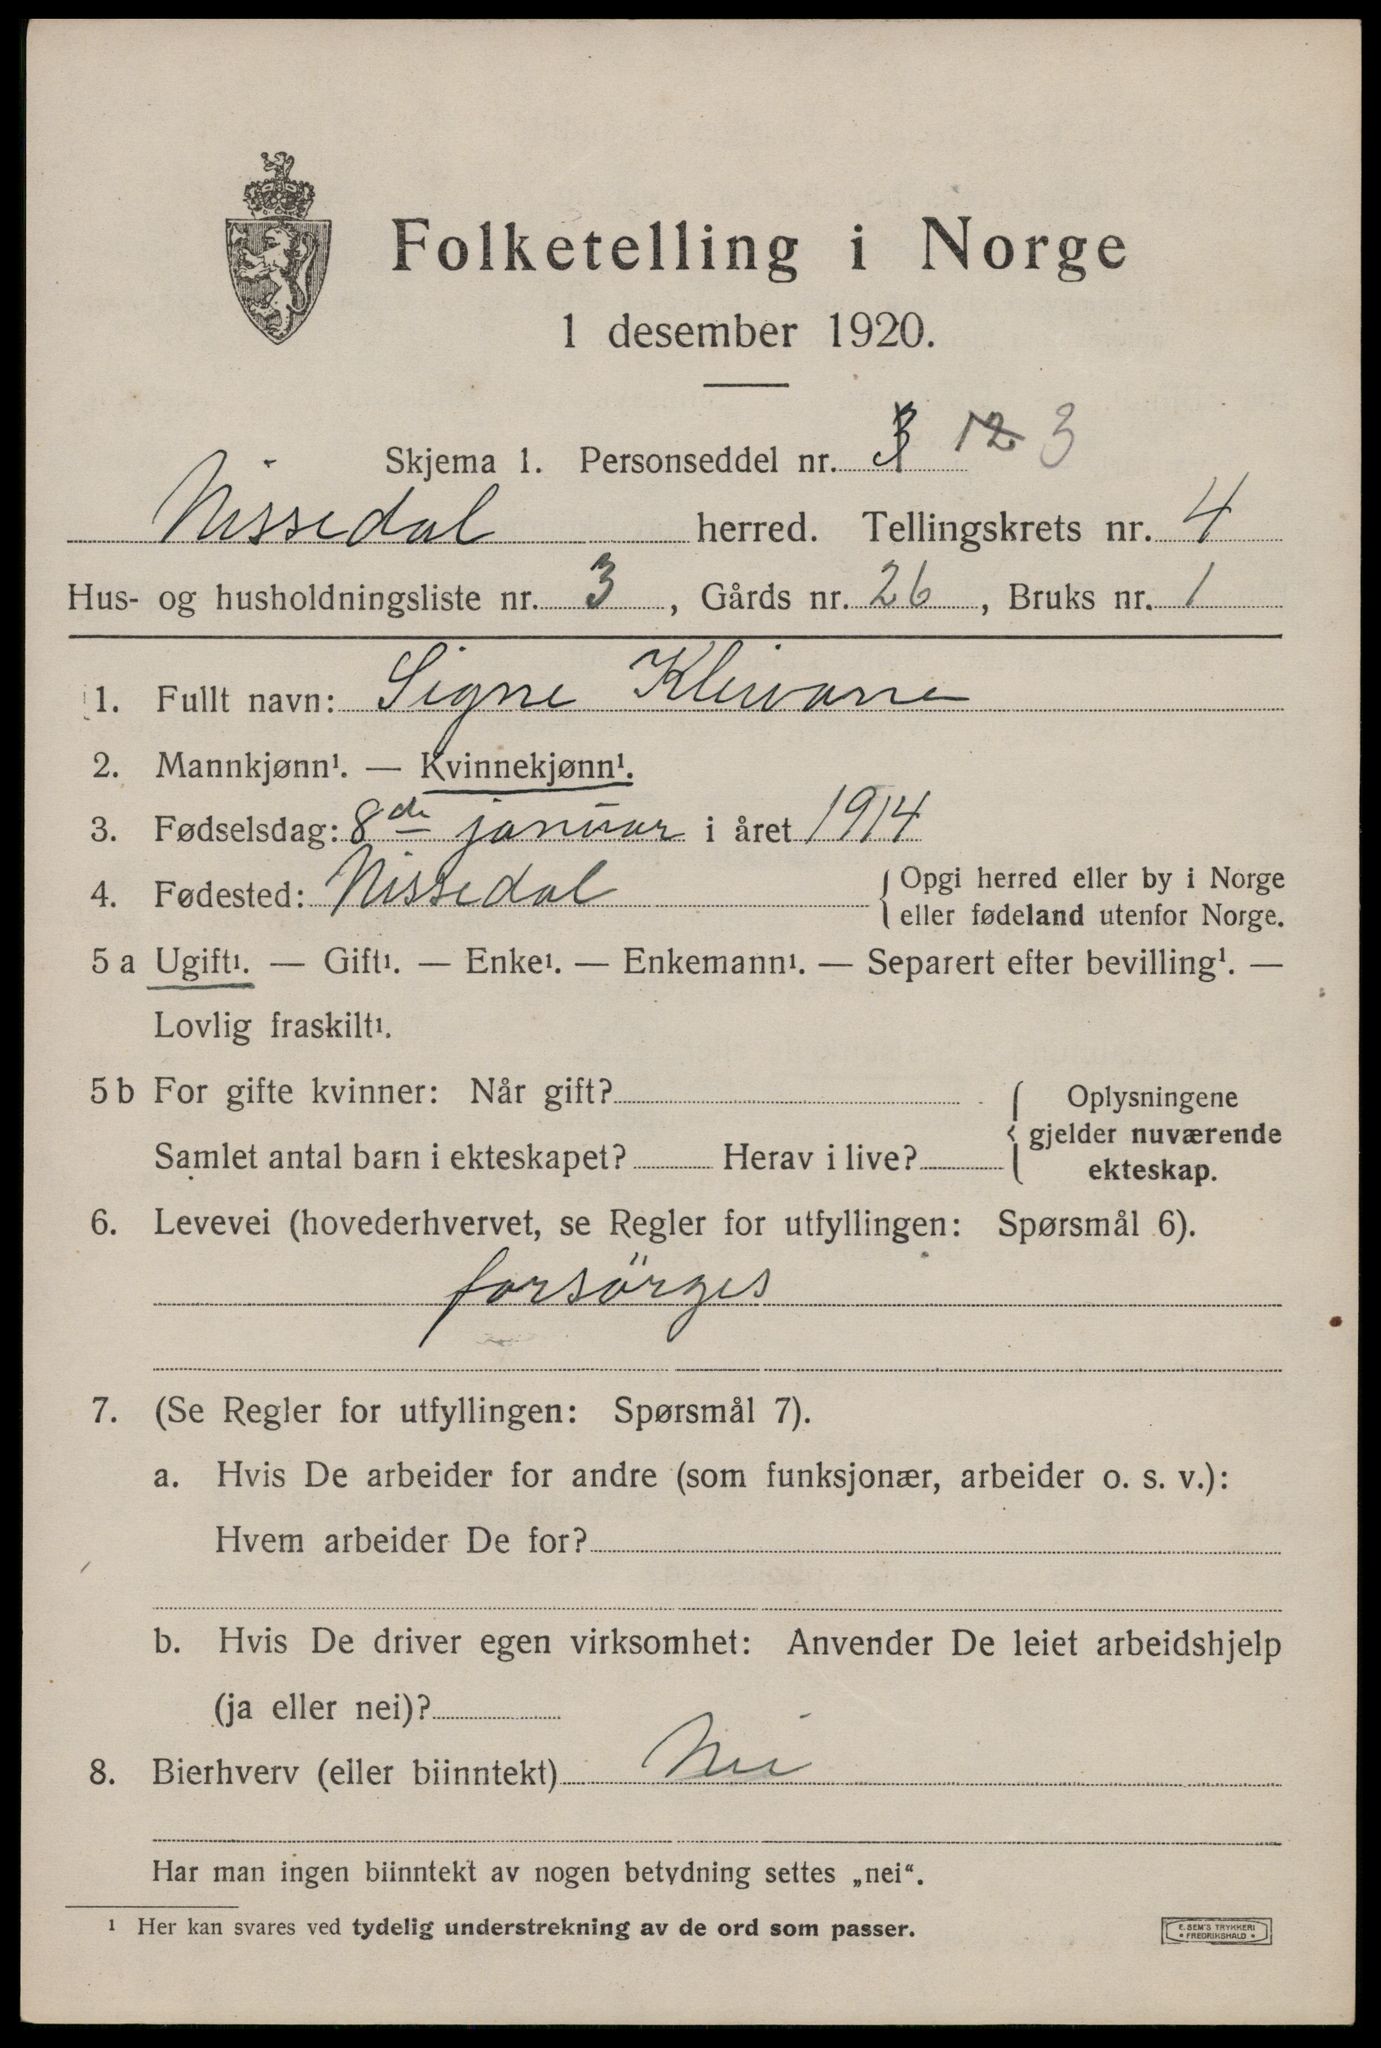 Folketelling i Norge
1 desember 1920.
Skjema 1. Personseddel nr. 3 12 3
Nissedal herred. Tellingskrets nr. 4
Hus- og husholdningsliste nr. 3, Gårds nr. 26, Bruks nr. 1
1. Fullt navn: Signe Kleivane
2. Mannkjønn¹. — Kvinnekjønn¹.
3. Fødselsdag: 8de januar i året 1914
4. Fødested: Nissedal { Opgi herred eller by i Norge
eller fødeland utenfor Norge.
5 a Ugift¹. — Gift¹. — Enke¹. — Enkemann¹. — Separert efter bevilling¹. —
Lovlig fraskilt¹.
5 b For gifte kvinner: Når gift?
Samlet antal barn i ekteskapet? Herav i live?
{ Oplysningene
gjelder nuværende
ekteskap.
6. Levevei (hovederhvervet, se Regler for utfyllingen: Spørsmål 6).
forsörges
7. (Se Regler for utfyllingen: Spørsmål 7).
a. Hvis De arbeider for andre (som funksjonær, arbeider o. s. v.):
Hvem arbeider De for?
b. Hvis De driver egen virksomhet: Anvender De leiet arbeidshjelp
(ja eller nei)?
8. Bierhverv (eller biinntekt) Nei
Har man ingen biinntekt av nogen betydning settes „nei“.
¹ Her kan svares ved tydelig understrekning av de ord som passer.
E. SEM'S TRYKKERI
• FREDRIKSHALD •